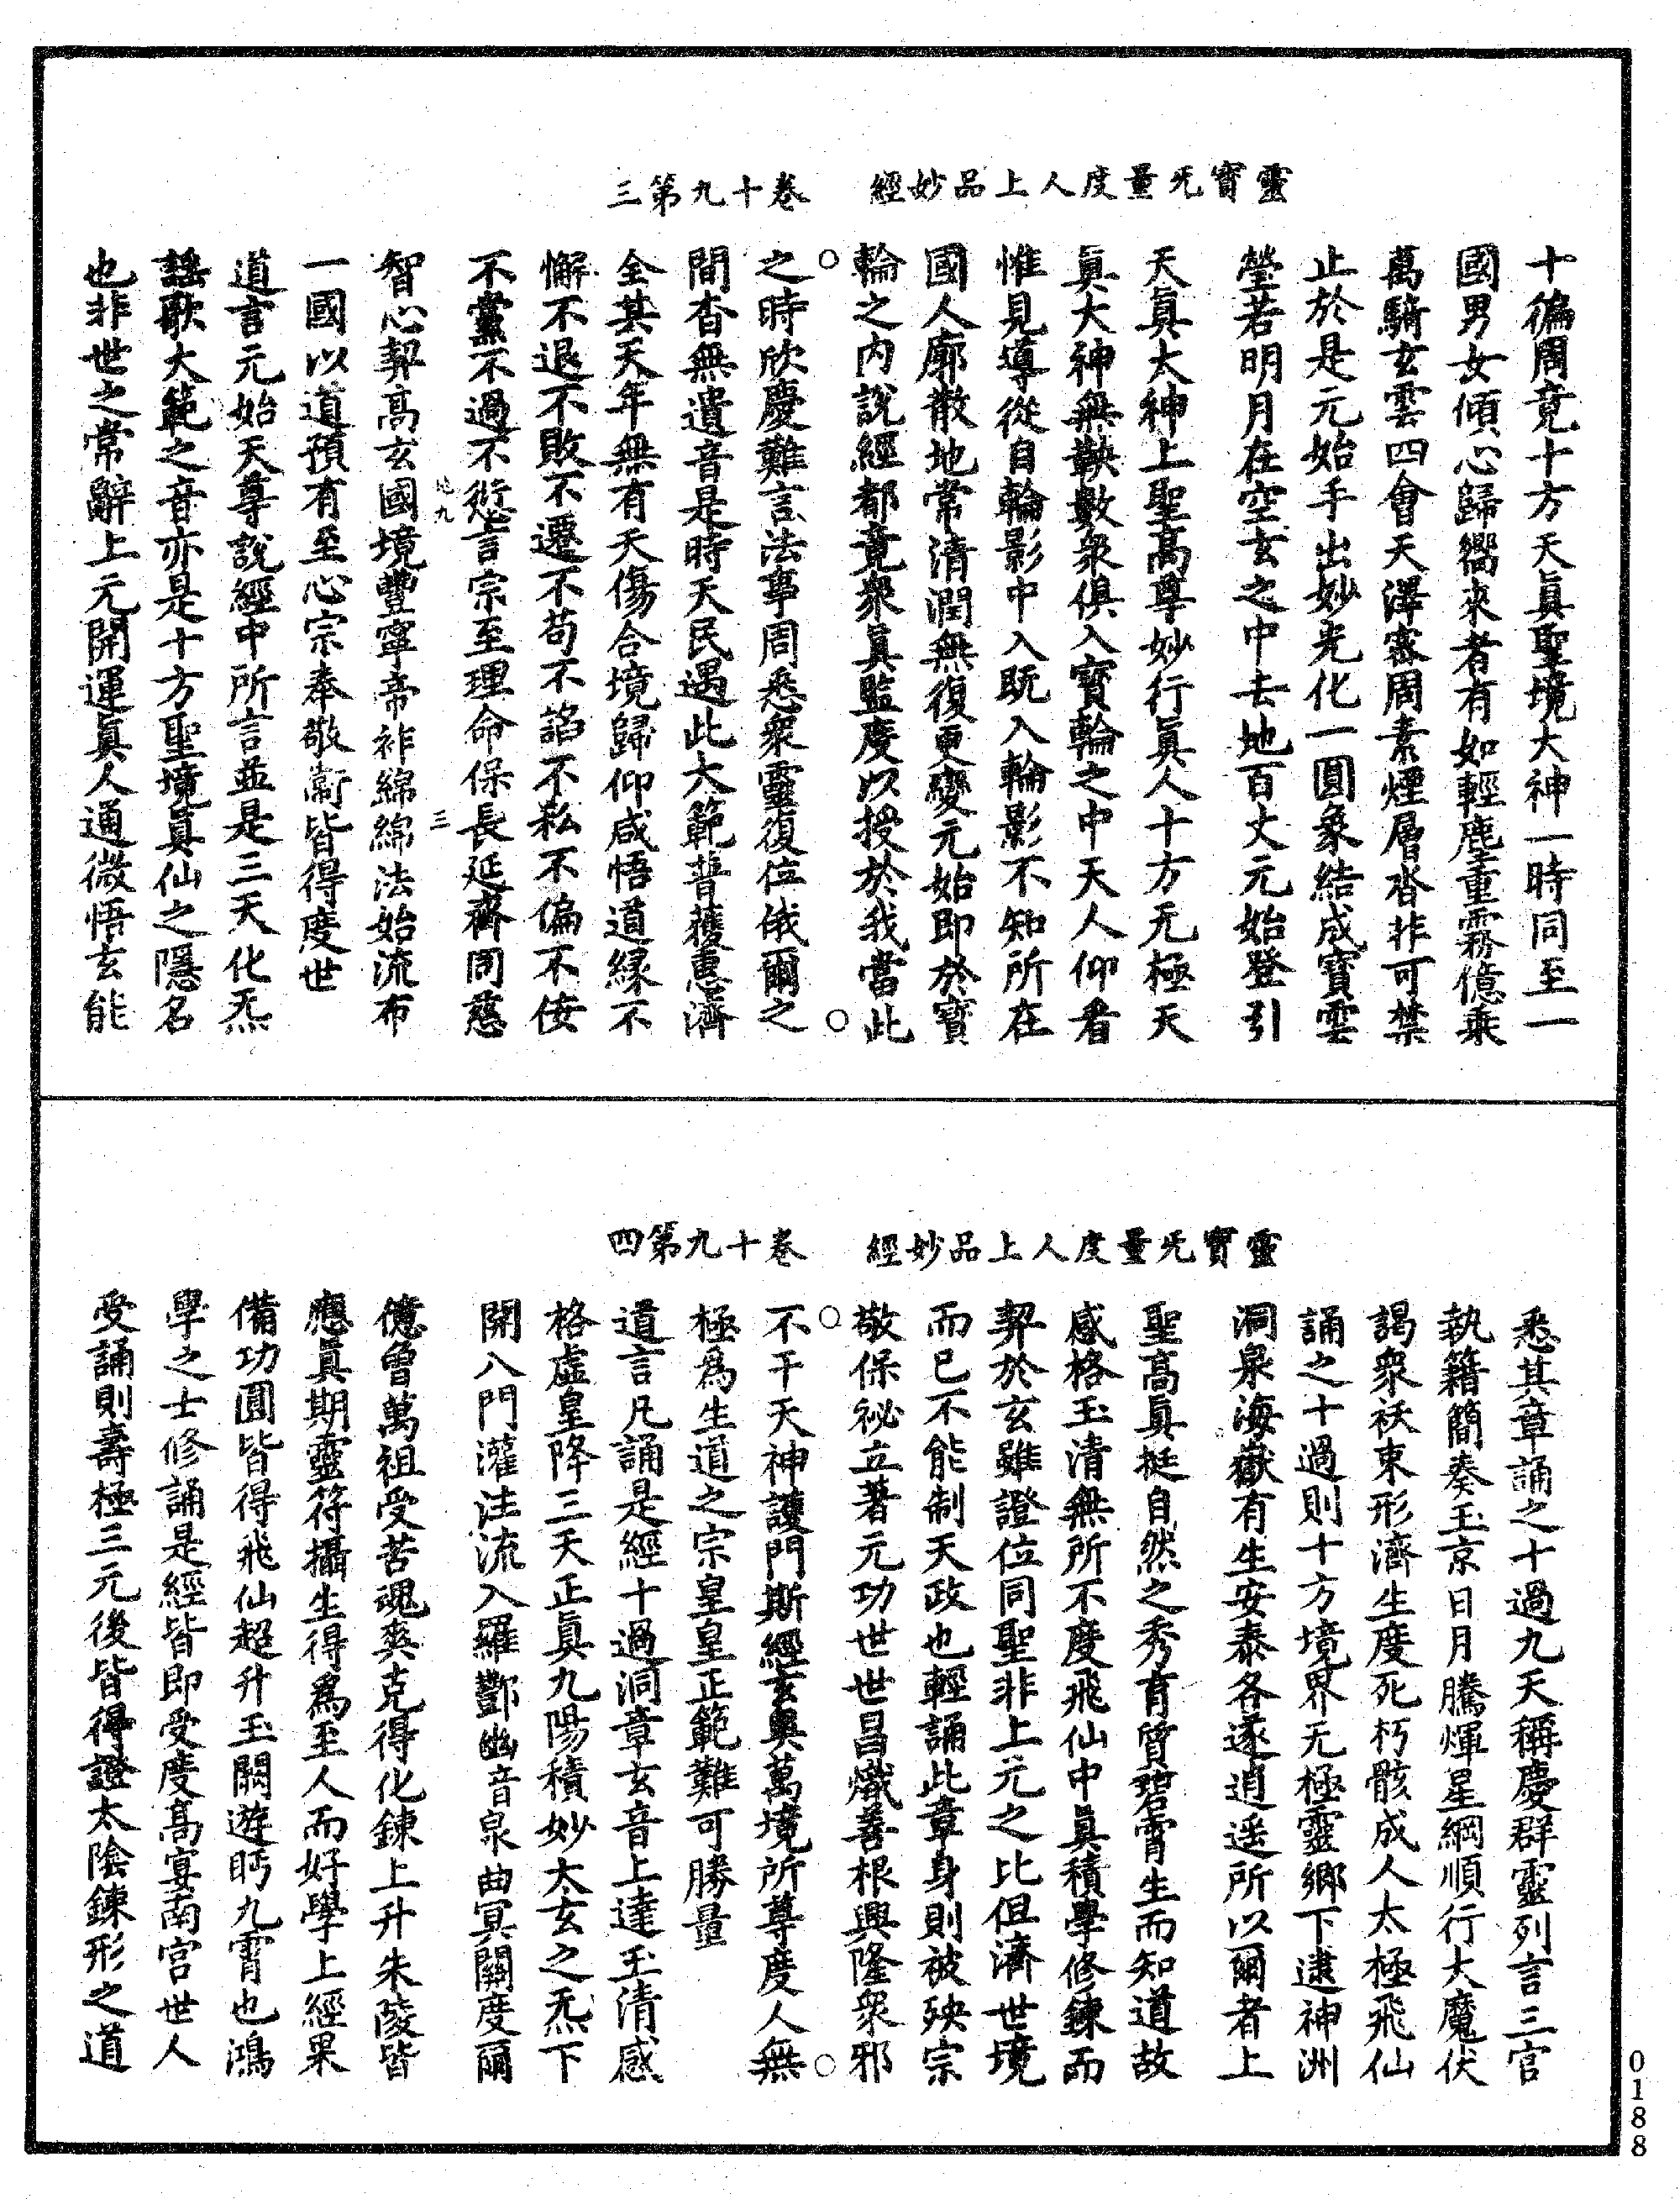 靈寶无量度人上品妙經　卷十九第三
十徧周竟十方天眞聖境大神一時同至一
國男女傾心歸嚮來者有如輕鹿重霧億乘
萬騎玄雲四會天澤密周素煙層沓非可禁
止於是元始手出妙光化一圓象結成寶雲
瑩若明月在空玄之中去地百丈元始登引
天眞太神上聖高尊妙行眞人十方无極天
眞大神無鞅數衆俱入寶輪之中天人仰看
惟見導從自輪影中入旣入輪影不知所在
國人廓散地常清潤無復更變元始即於寶
輪之內說經都竟衆眞監度以授於我當此
之時欣慶難言法事周悉衆靈復位俄爾之
間杳無遺音是時天民遇此大範普獲惠濟
全其天年無有夭傷合境歸仰咸悟道緣不
懈不退不敗不遷不苟不諂不私不偏不佞
不黨不過不愆言宗至理命保長延齊同慈
智心契高玄國境豐寧帝祚綿綿法始流布
一國以道預有至心宗奉敬衛皆得度世
道言元始天尊說經中所言並是三天化炁
謠歌大範之音亦是十方聖境眞仙之隱名
也非世之常辭上元開運眞人通微悟玄能
靈寶无量度人上品妙經　卷十九第四
悉其章誦之十過九天稱慶群靈列言三官
執籍簡奏玉京日月騰輝星綱順行大魔伏
謁衆祅束形濟生度死朽骸成人太極飛仙
誦之十過則十方境界无極靈鄉下逮神洲
洞泉海嶽有生安泰各遂逍遥所以爾者上
聖高眞挺自然之秀育質碧霄生而知道故
感格玉清無所不度飛仙中眞積學修鍊而
契於玄雖證位同聖非上元之比但濟世境
而已不能制天政也輕誦此章身則被殃宗
敬保祕立著元功世世昌熾善根興隆衆邪
不干天神護門斯經玄奧萬境所尊度人無
極爲生道之宗皇皇正範難可勝量
道言凡誦是經十過洞章玄音上達玉清感
格虛皇降三天正眞九陽積妙大玄之炁下
開八門灌注流入羅酆幽音泉曲冥關度爾
億曾萬祖受苦魂爽克得化鍊上升朱陵皆
應眞期靈符攝生得爲至人而好學上經果
備功圓皆得飛仙超升玉闕遊眄九霄也鴻
學之士修誦是經皆即受度高宴南宮世人
受誦則壽極三元後皆得證太陰鍊形之道
0188